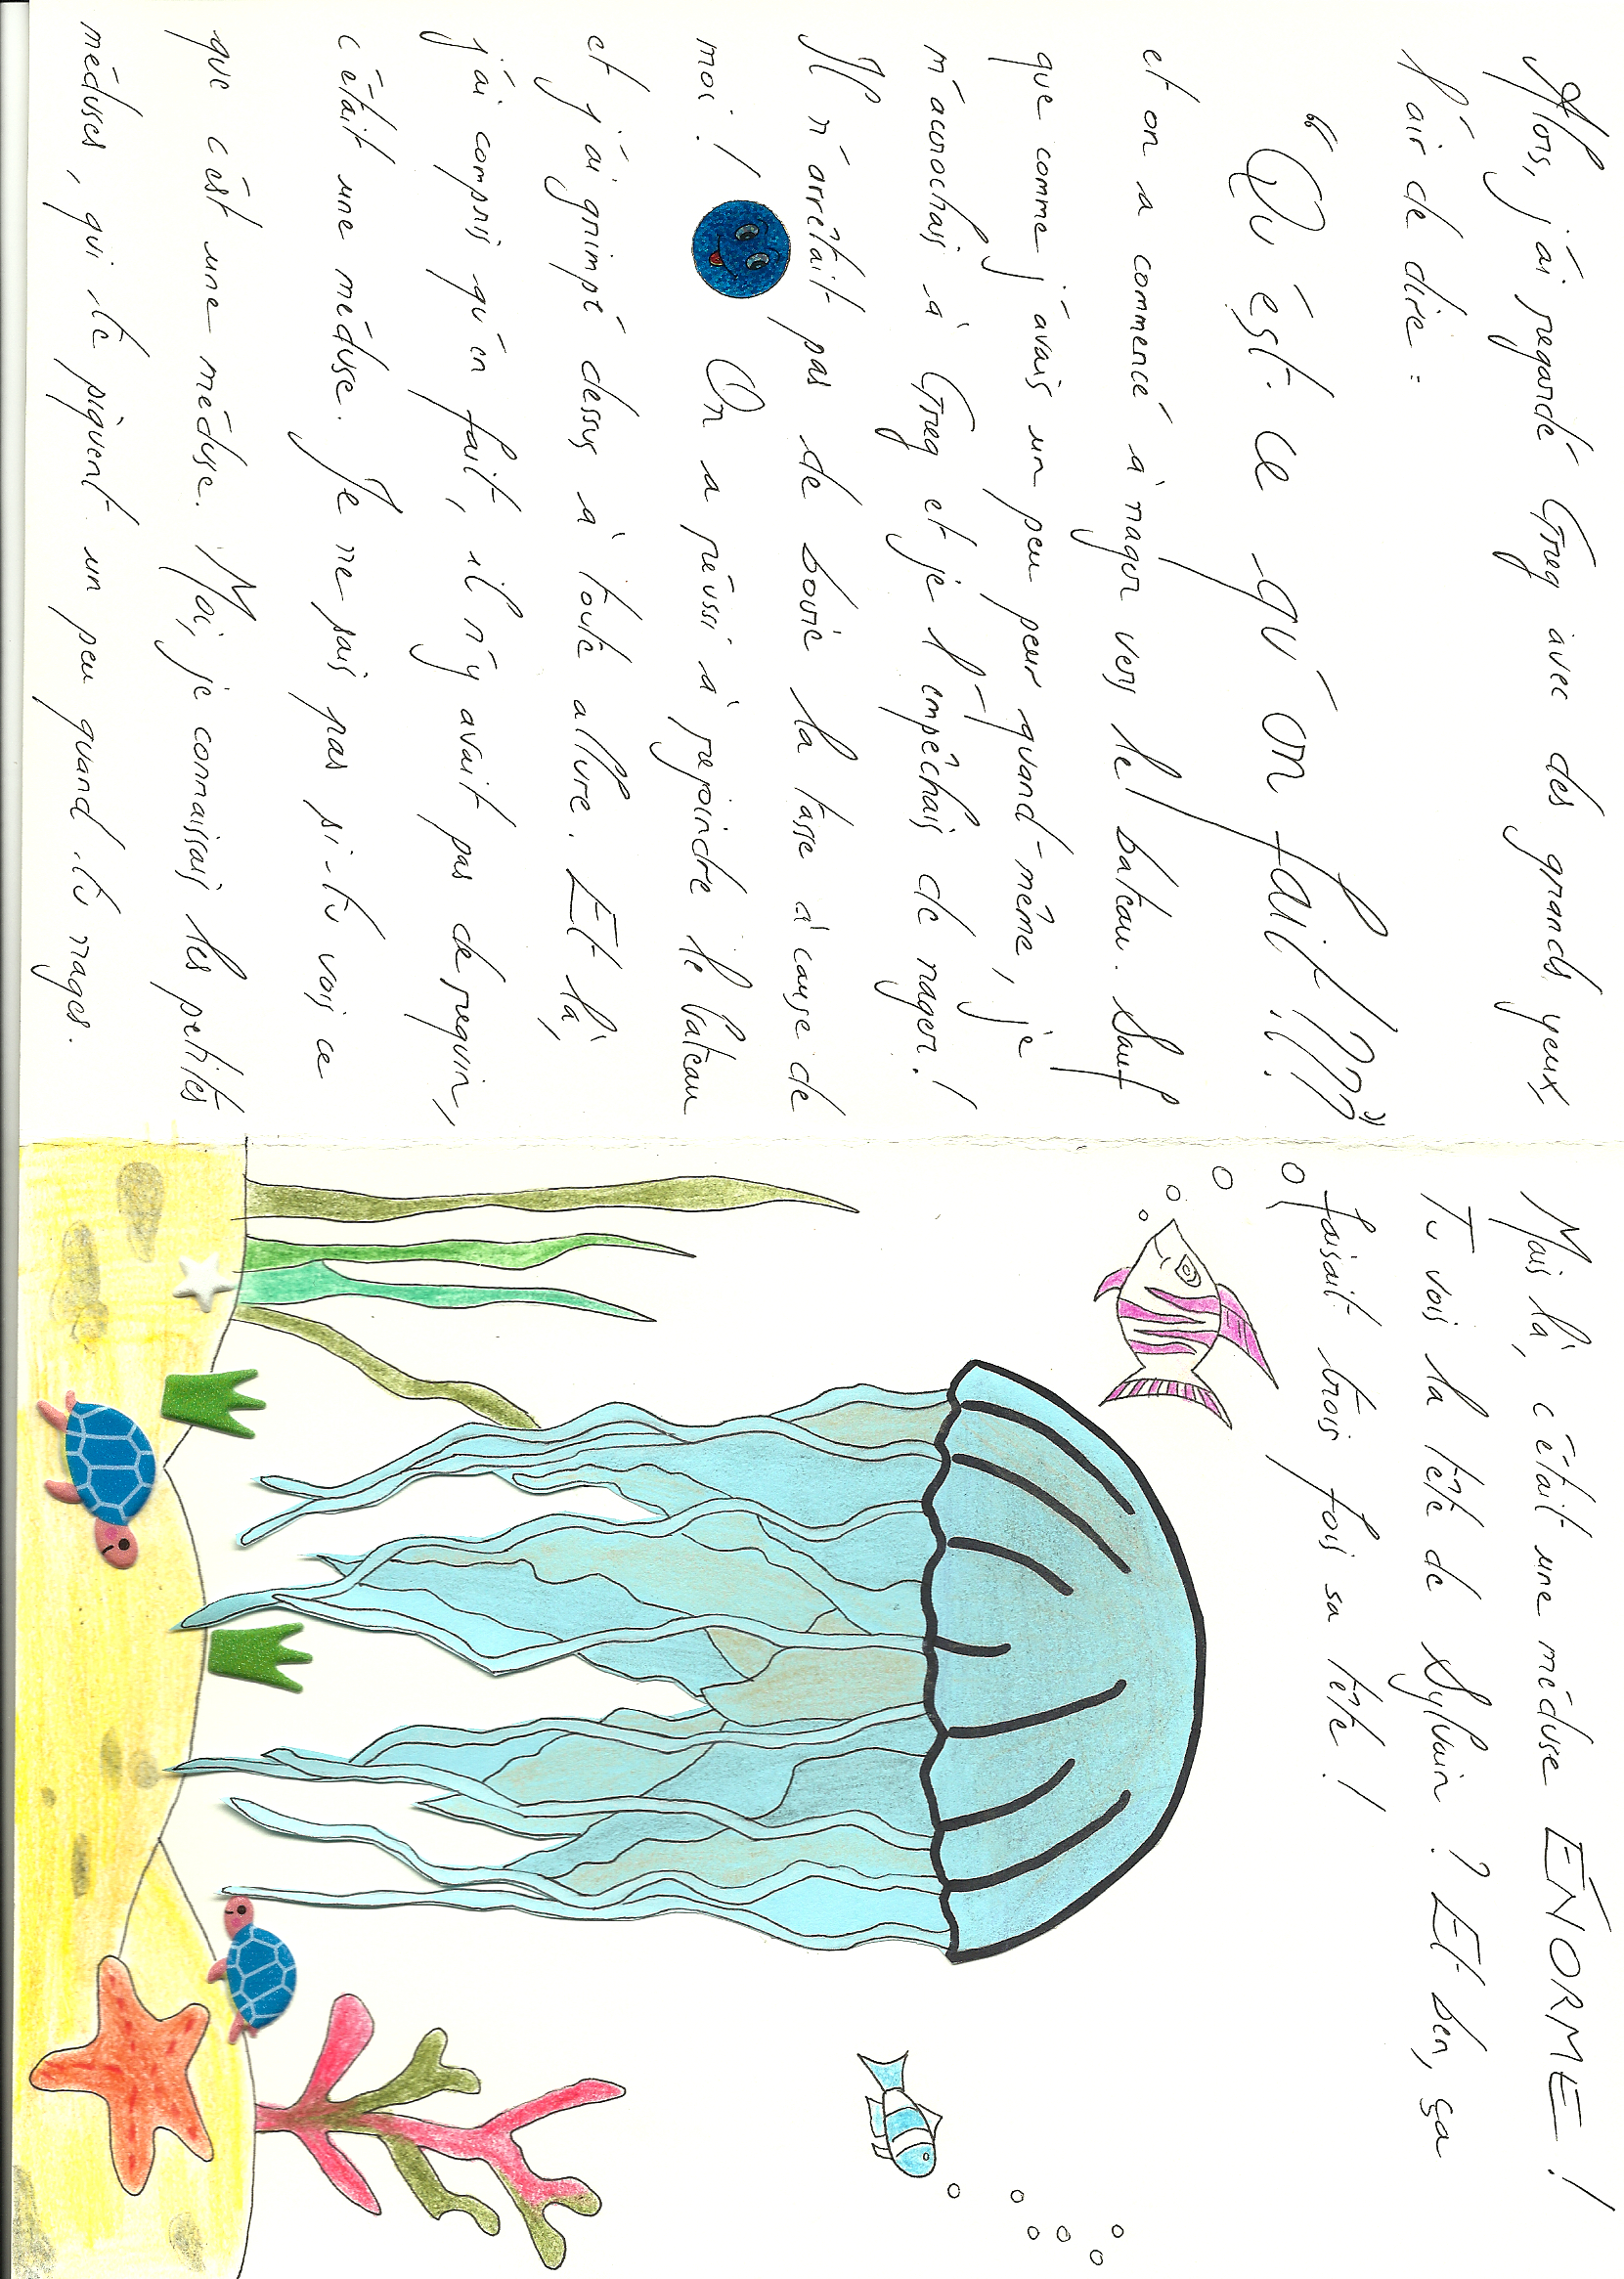 Alors, j'ai regardé Greg avec des grands yeux,
l'air de dire :
"Qu'est-ce qu'on fait !???"
et on a commencé à nager vers le bateau. Sauf
que comme j'avais un peu peur quand-même, je
m'accrochais à Greg et je l'empêchais de nager !
Il n'arrêtait pas de boire la tasse à cause de
moi ! On a réussi à rejoindre le bateau
et j'ai grimpé dessus à toute allure. Et là,
j'ai compris qu'en fait, il n'y avait pas de requin,
c'était une méduse. Je ne sais pas si tu vois ce
que c'est une méduse. Moi, je connaissais les petites
méduses, qui te piquent un peu quand tu nages.
Mais là, c'était une méduse ÉNORME !
Tu vois la tête de Sylvain ? Et ben, ça
faisait trois fois sa tête !